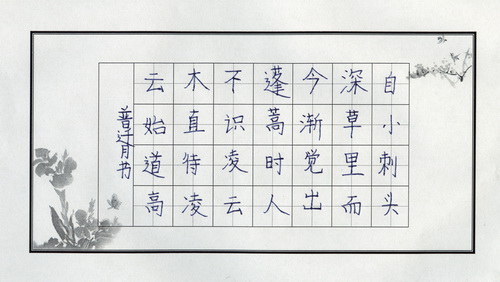 自小刺头
深草里而
今渐觉出
蓬蒿时人
不识凌云
木直待凌
云始道高
普月书